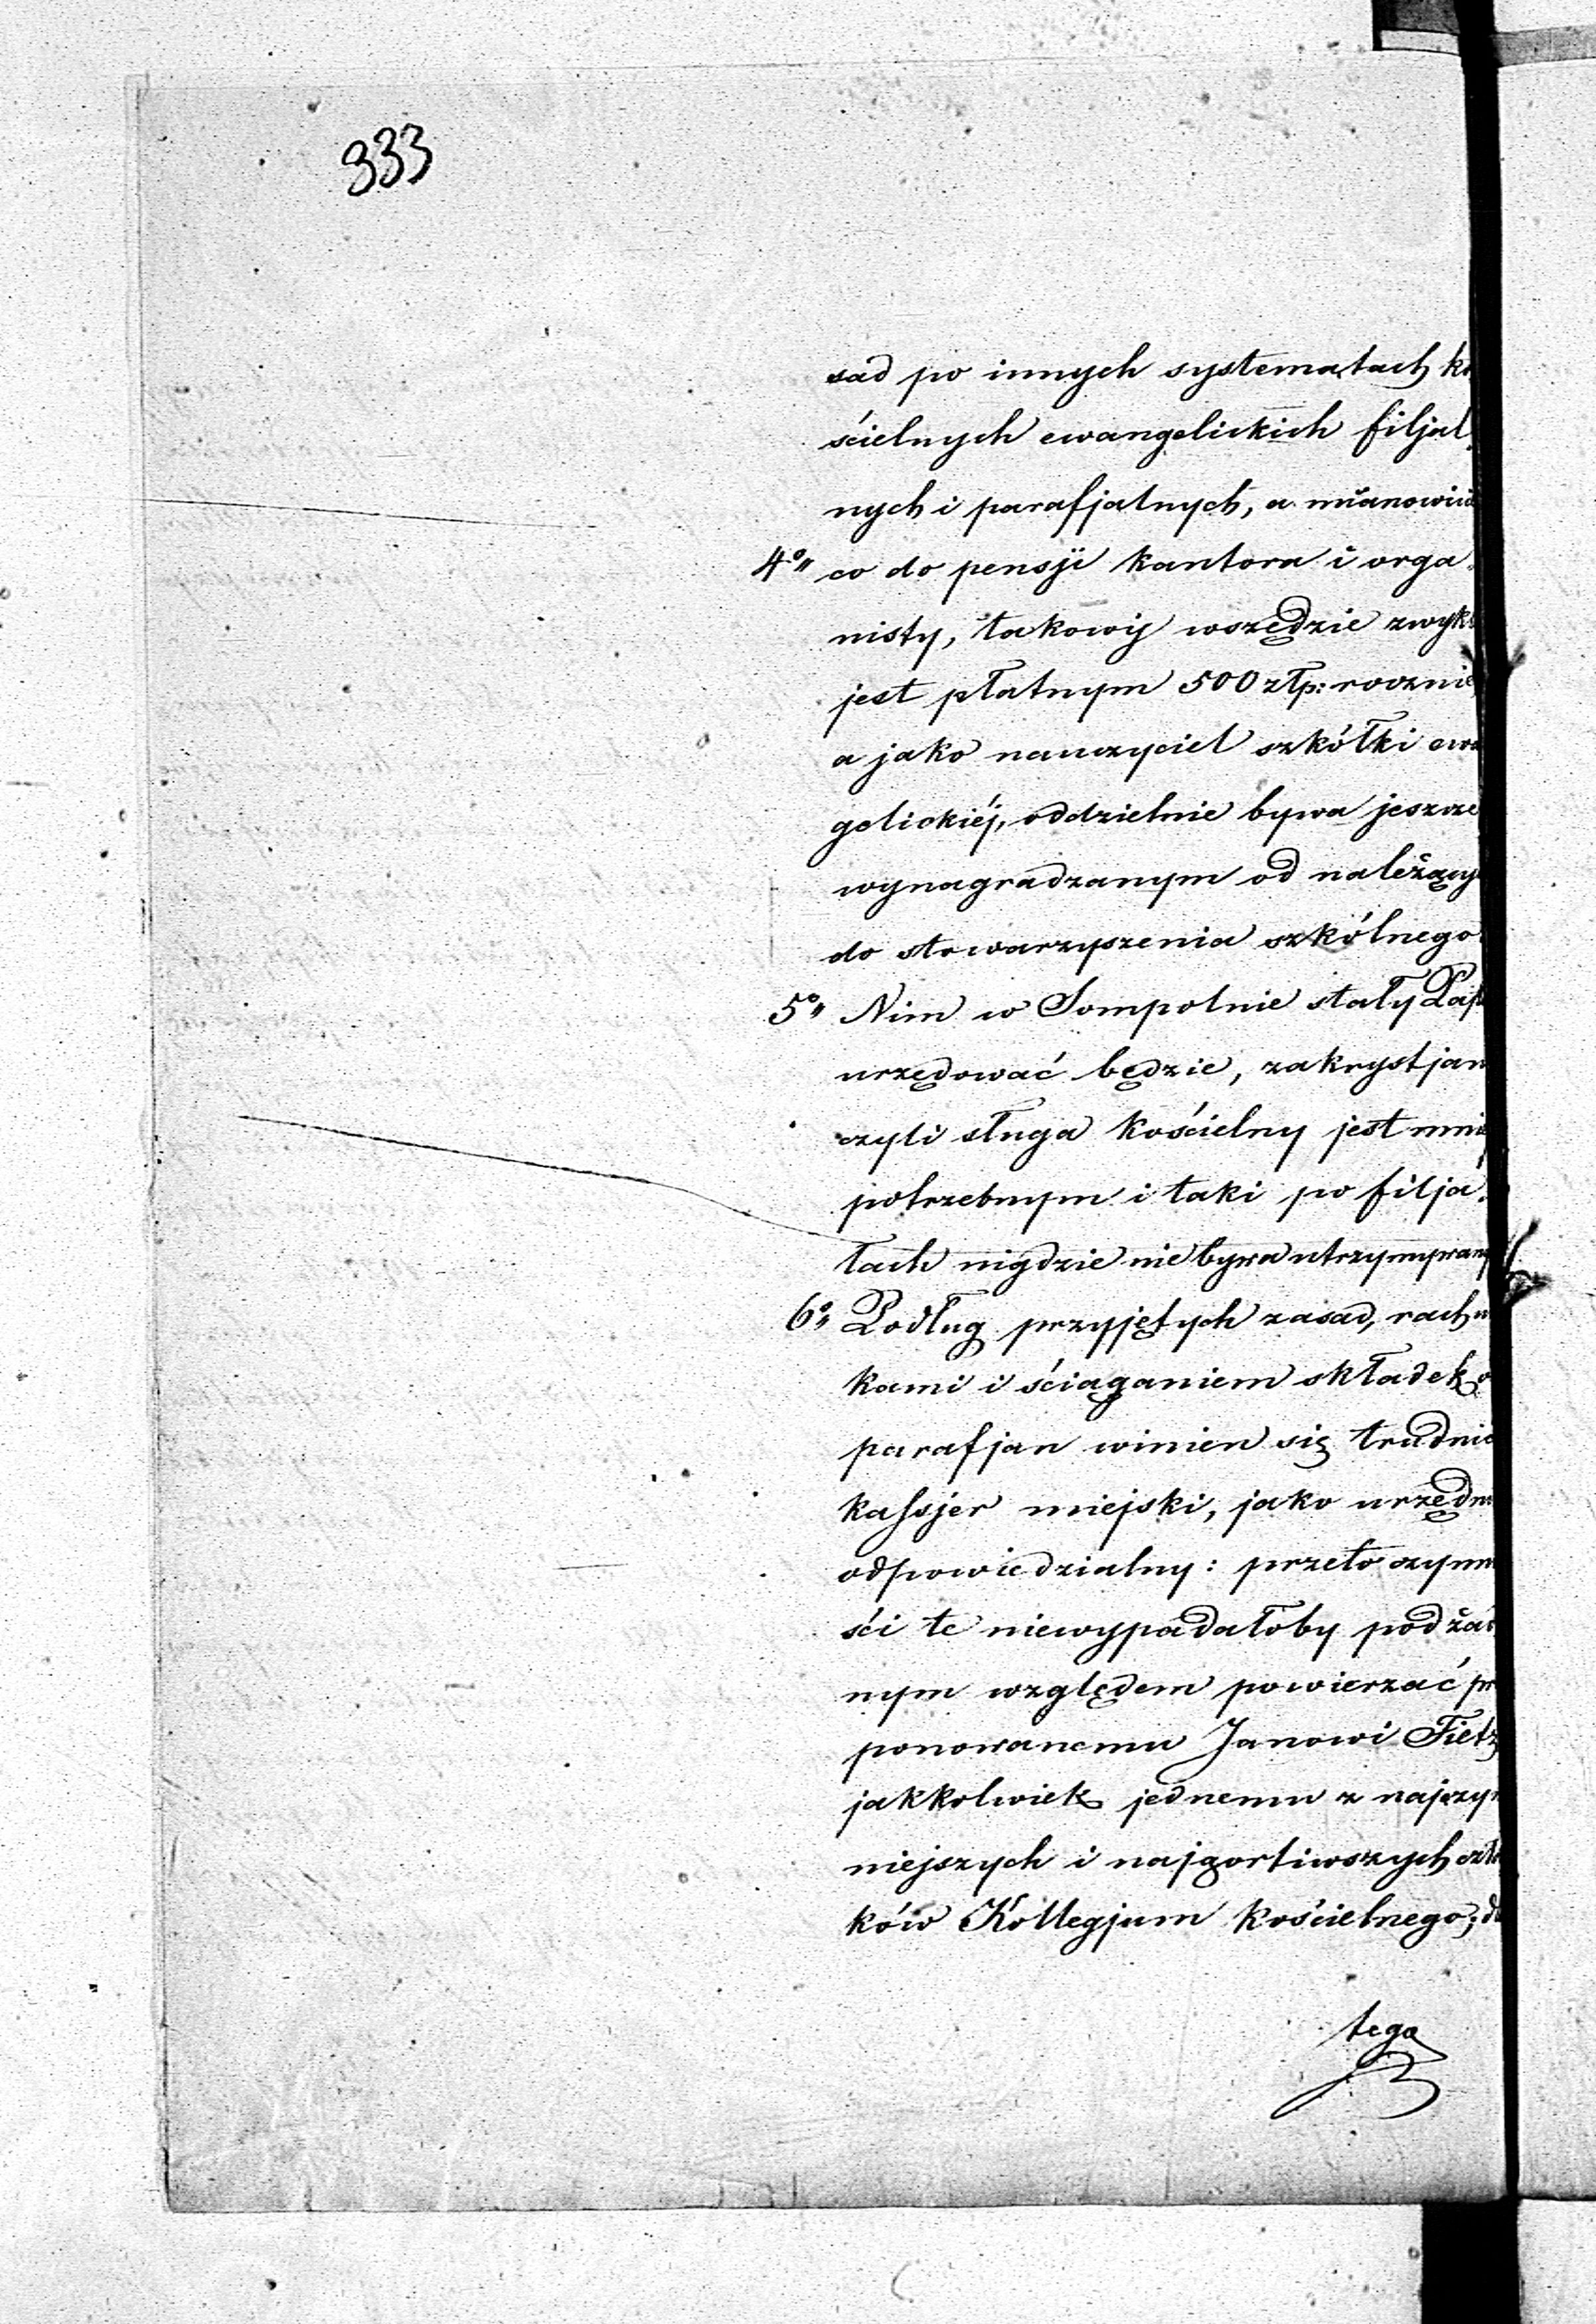 333
sad po innych systematach ko
ścielnych ewangelickich filjal-
nych i parafjalnych, a mianowicie
4o co do pensji kantora i orga-
nisty, takowy wszędzie zwykle
jest płatnym 500 złp: rocznie
a jako nauczyciel szkółki ewa
gelickiéj, oddzielnie bywa jeszcze
wynagradzanym od należący
do stowarzyszenia szkólnego
5o Nim w Sompolnie stały
urzędować będzie, zakrystjan
czyli sługa kościelny jest mniej
potrzebnym i taki po filja-
łach nigdzie nie bywa utrzymywany
6o Podług przyjętych zasad, rachu
kami i ściąganiem składek o
parafjan winien się trudnić
kassjer miejski, jako urzędni
odpowiedzialny: przeto czynno
ści te niewypadałoby pod żad
nym względem powierzać pr
ponowanemu Janowi Fietz
jakkolwiek jednemu z najczyn
niejszych i najgorliwszych człon
ków Kollegjum kościelnego; do
tego